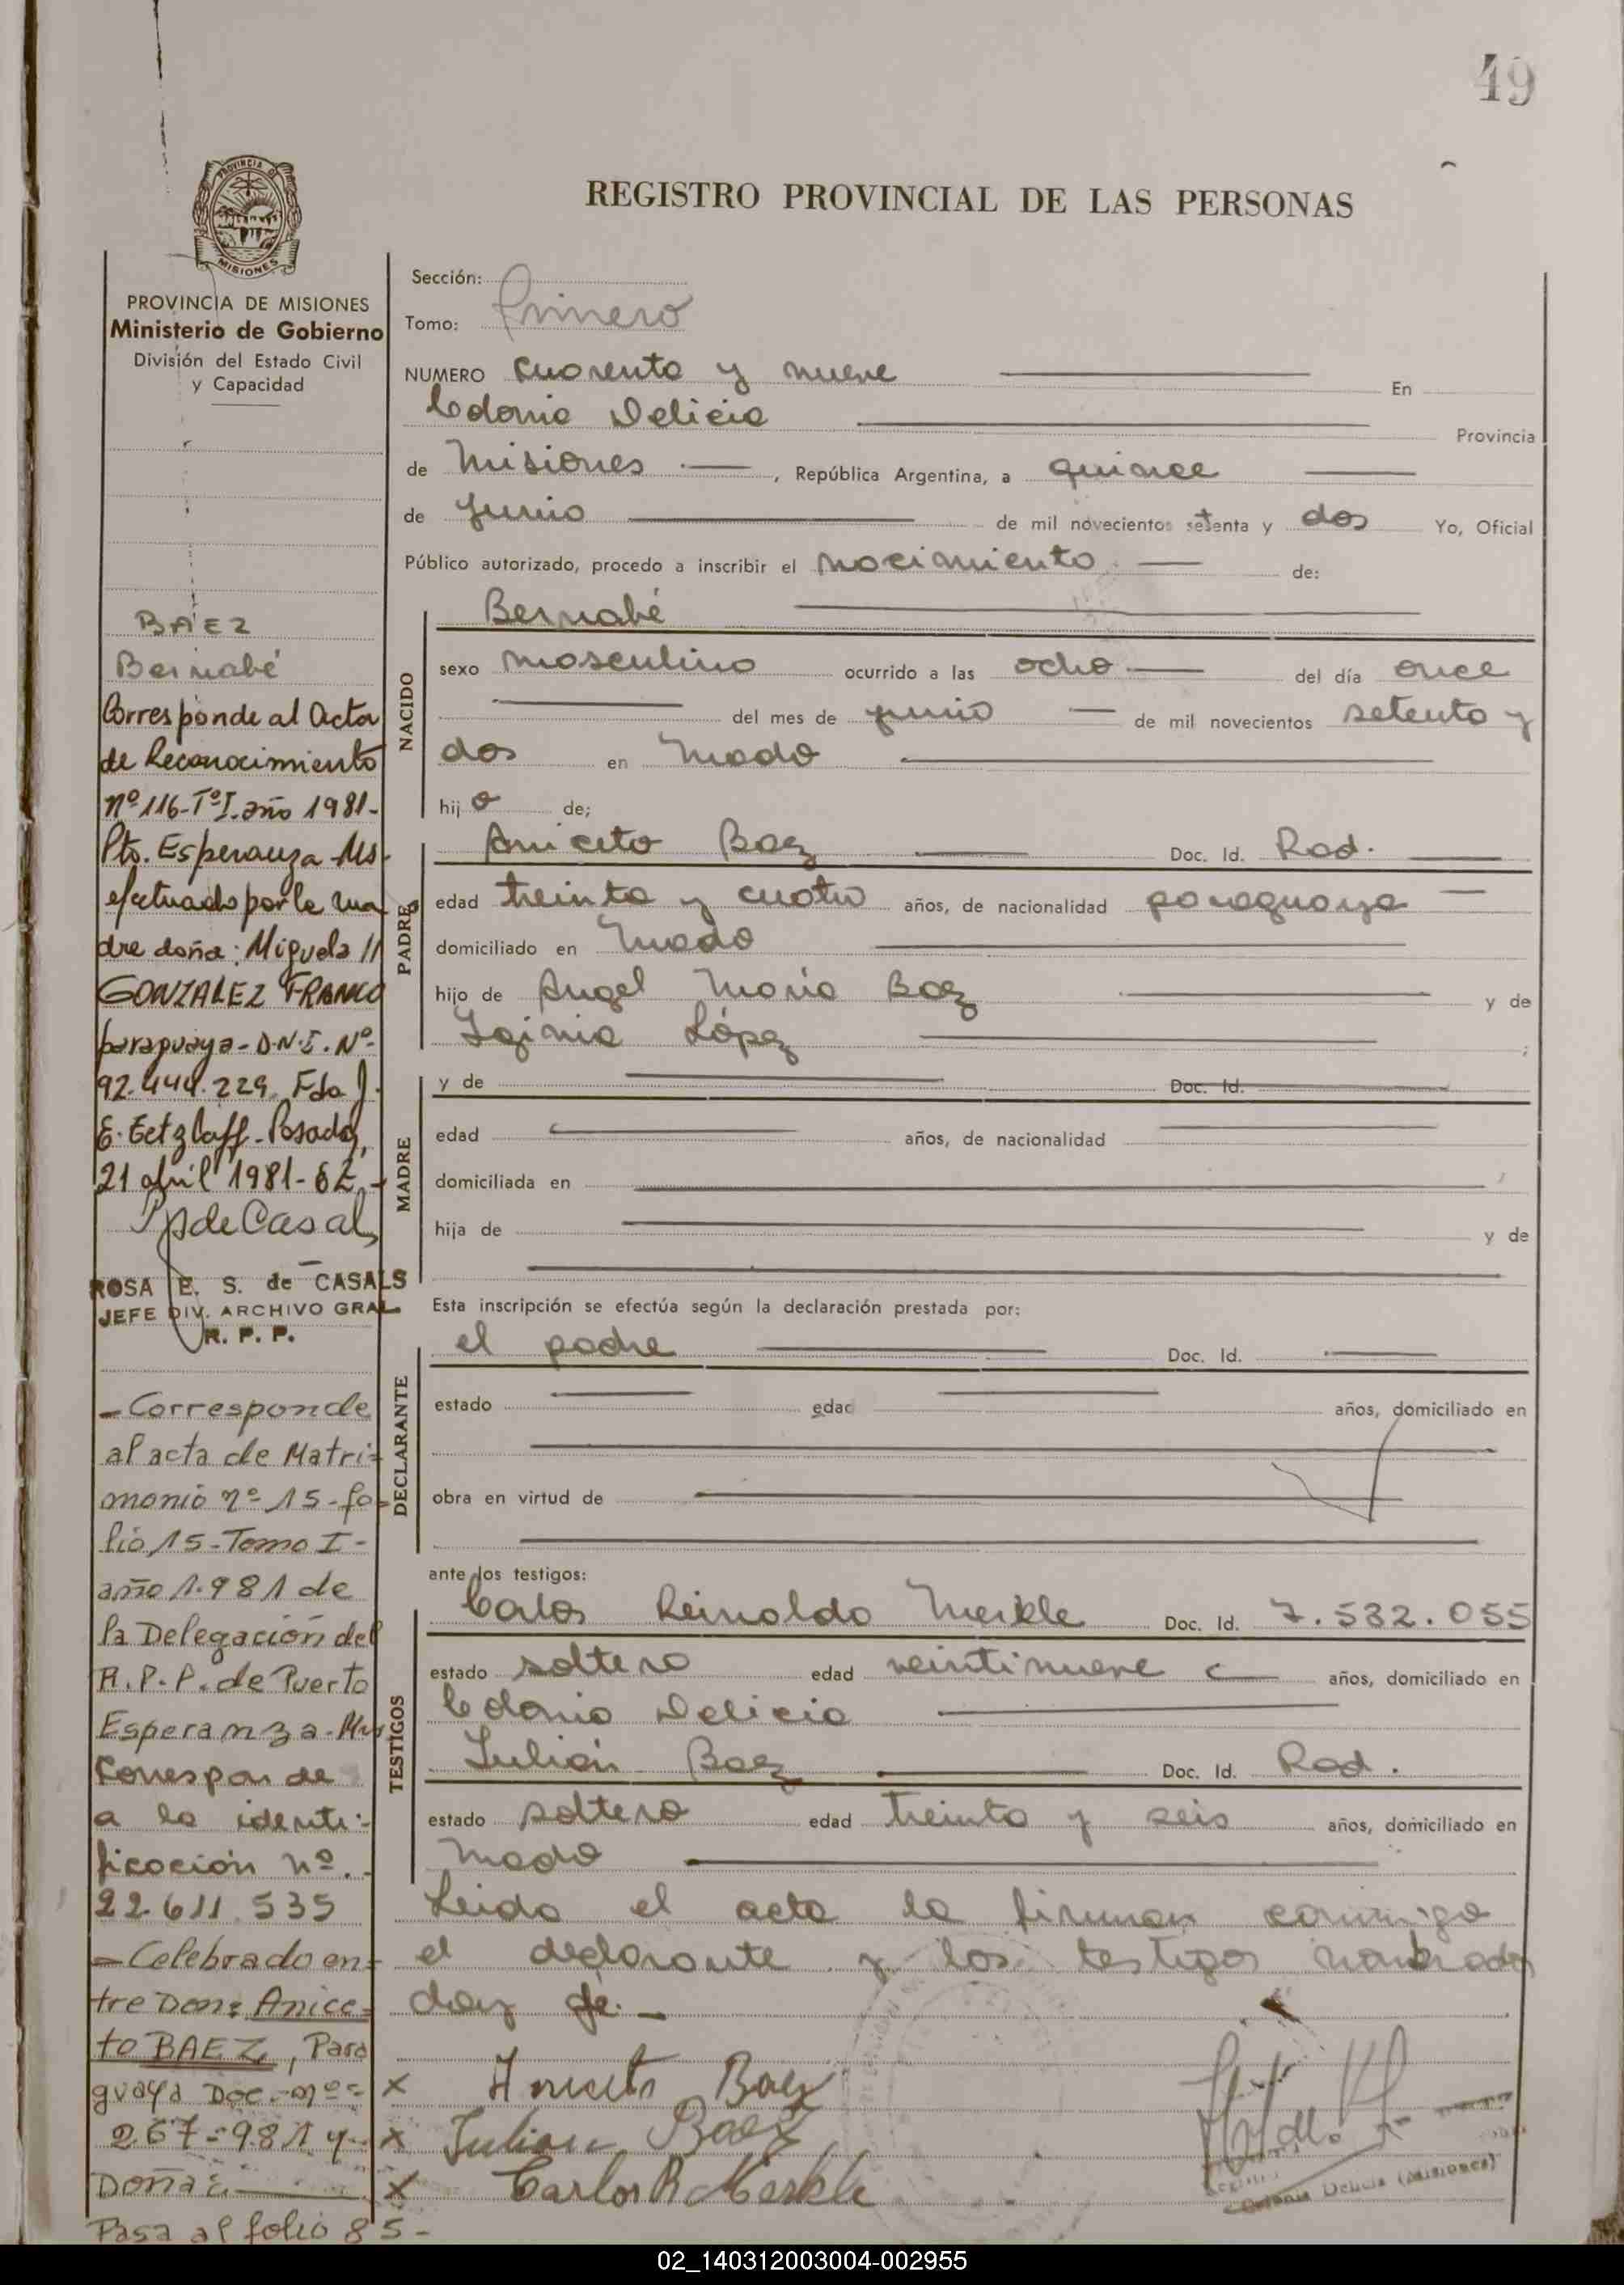 49
PROVINCIA DE
MISIONES
REGISTRO PROVINCIAL DE LAS PERSONAS
PROVINCIA DE MISIONES
Ministerio de Gobierno
División del Estado Civil
y Capacidad
BAEZ
Bernabé
Corresponde al Acta
de Reconocimiento
nº 116-TºI. año 1981-
Pto. Esperanza-Ms.
efectuado por la ma
dre doña: Miguela //
GONZALEZ FRANCO
paraguaya-D.N.I. Nº
92.444.229. Fdo J.
E. Eetzlaff-Posadas,
21 abril 1981-
de Casals
ROSA E. S. de CASALS
JEFE DIV. ARCHIVO GRAL
R. P. P.
-Corresponde
al acta de Matri=
monio nº 15-fo=
lio 15-Tomo I-
año 1.981 de
la Delegación del
R.P.P. de Puerto
Esperanza-Mnes
Corresponde
a la identi-
ficación nº.-
22.611.535
-Celebrado en=
tre Don: Anice=
to BAEZ, Para
guaya Doc.-nº=
267=981 y
Doña:
Pasa al folio 85-
Sección:
Tomo: Primero
NUMERO cuarenta y nueve En
Colonia Delicia Provincia
de Misiones , República Argentina, a quince
de junio de mil novecientos setenta y dos Yo, Oficial
Público autorizado, procedo a inscribir el nacimiento de:
NACIDO
Bernabé
sexo masculino ocurrido a las ocho del día once
del mes de junio de mil novecientos setenta y
dos en Mado
hij o de;
PADRE
Aniceto Baez Doc. Id. Rad.
edad treinta y cuatro años, de nacionalidad paraguaya
domiciliado en Mado
hijo de Angel Maria Baez y de
Iginia López ;
MADRE
y de Doc. Id.
edad años, de nacionalidad
domiciliada en
hija de y de
Esta inscripción se efectúa según la declaración prestada por:
DECLARANTE
el padre Doc. Id.
estado edad años, domiciliado en
obra en virtud de
ante los testigos:
TESTIGOS
Carlos Reinaldo Merkle Doc. Id. 7.532.055
estado soltero edad veintinueve años, domiciliado en
Colonia Delicia
Julián Baez Doc. Id. Rad.
estado soltero edad treinta y seis años, domiciliado en
Mado
Leida el acta la firman conmigo
el declarante y los testigos nombrados
doy fé.-
x Aniceto Baez
x Julian Baez
x Carlos R Merkle
Colonia Delicia (Misiones)
02_140312003004-002955